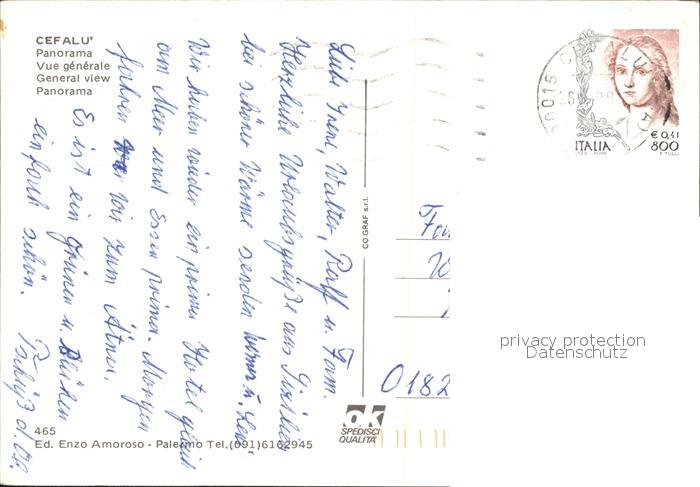 CEFALU'
Panorama
Vue générale
General view
Panorama
Liebe Irene, Walter, Ralf u. Fam.
Herzliche Urlaubsgrüße aus Sizilien
bei schöner Wärme senden
Wir haben wieder ein prima Hotel gleich
am Meer und Essen prima. Morgen
fahren wir zum Ätna.
Es ist ein Grünen u. Blühen
einfach schön.
465
Ed. Enzo Amoroso - Palermo Tel.(091)6162945
CO.GRAF s.r.l.
ok
SPEDISCI
QUALITÀ
ITALIA
€ 0,41
800
0182
privacy protection
Datenschutz